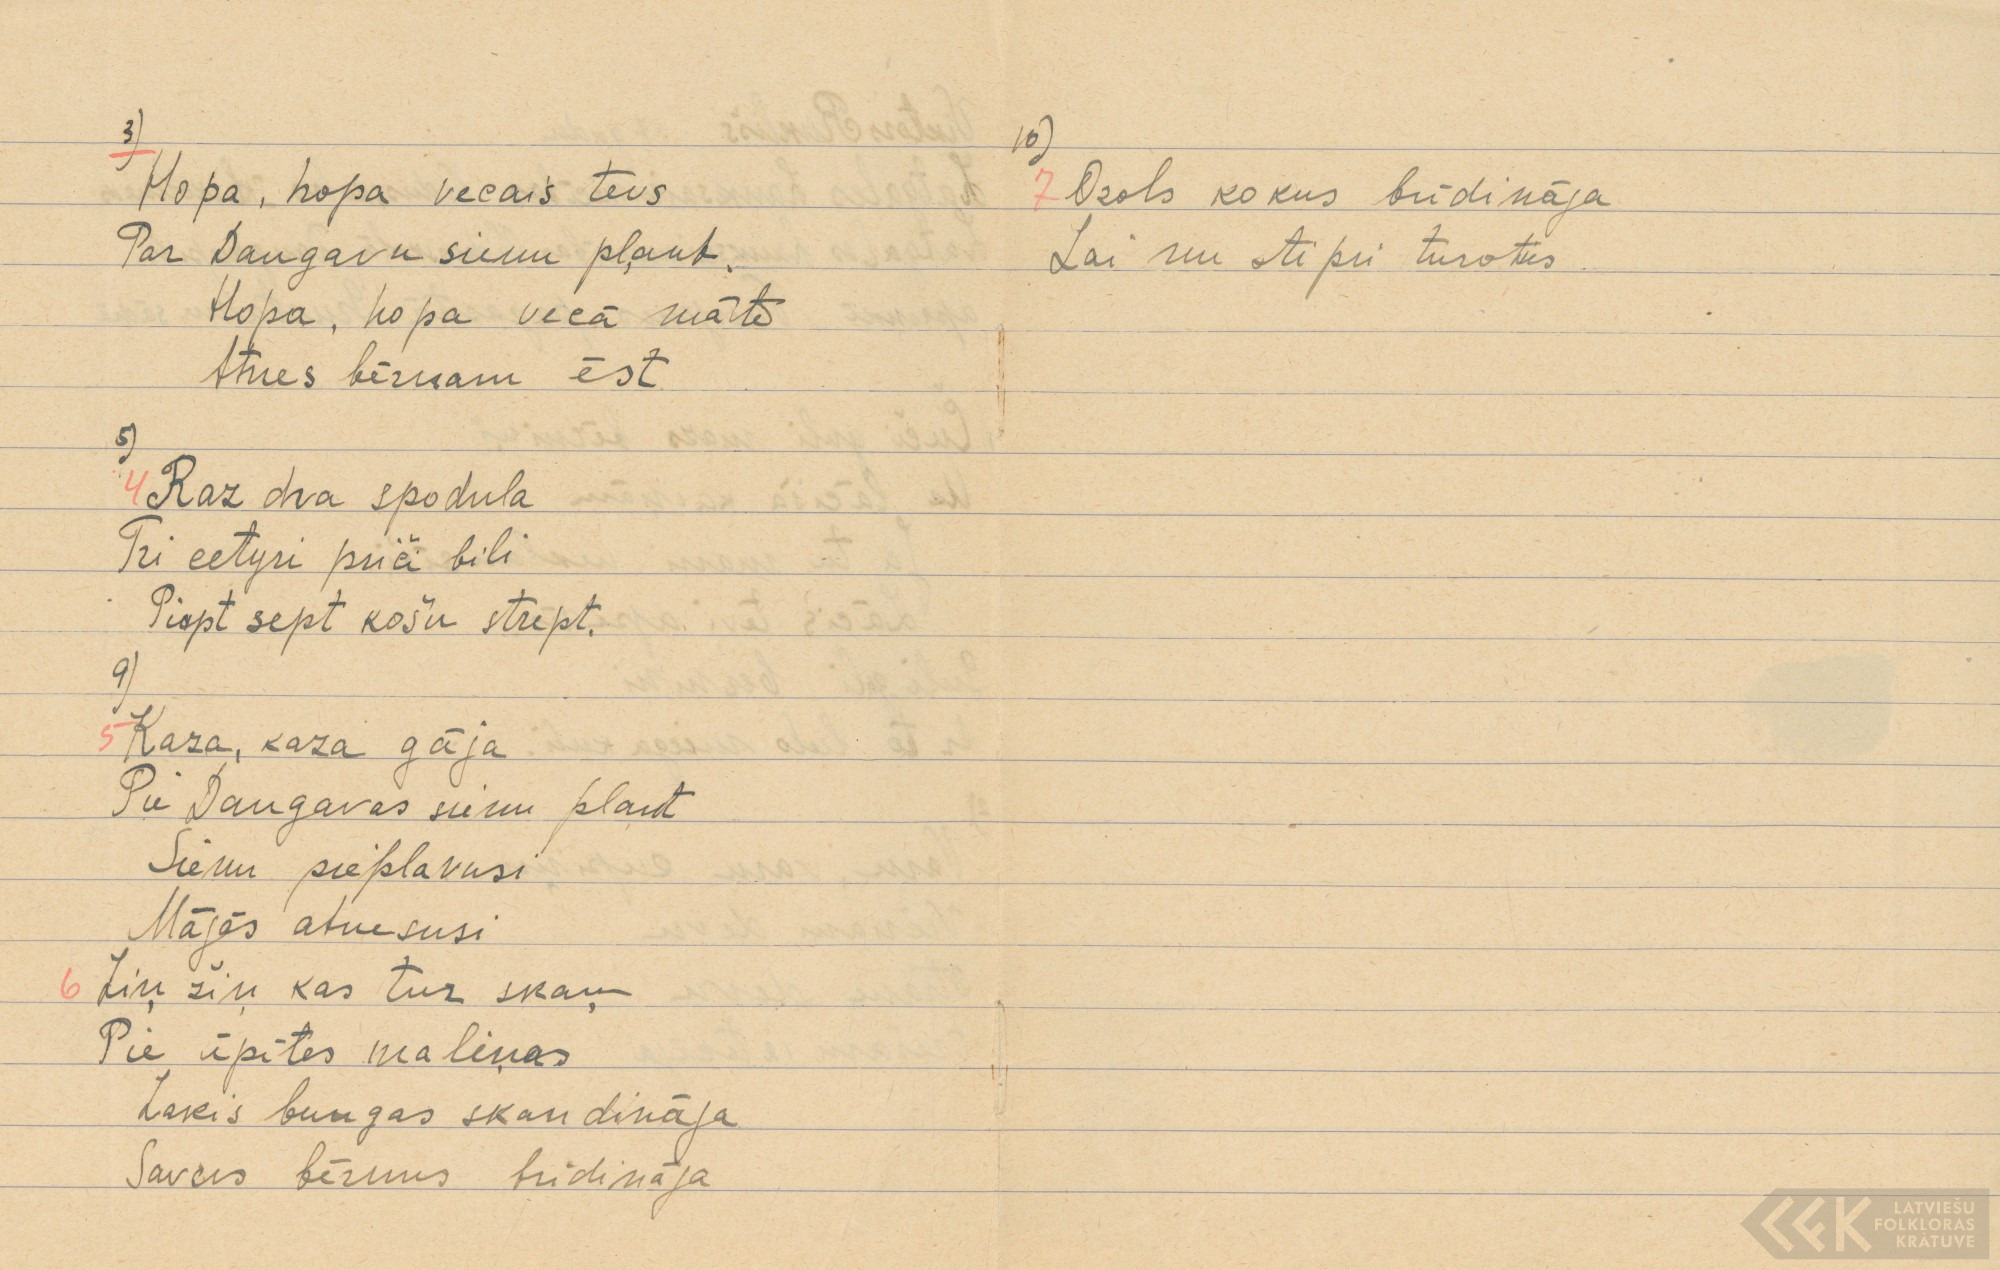 3)
Hopa, hopa vecais tevs
Par Daugavu sienu pļaut.
Hopa, hopa vecā māte
Atnes bērnam ēst
5)
4 Raz dva spodula
Tri cetyri priči bili
Piopt sept košu strept.
9)
5 Kaza, kaza gāja
Pie Daugavas sienu plaut
Sienu piepļavusi
Mājās atnesusi
6 Ziņ ziņ kas tur skaņ
Pie ūpītes maliņas
Zaķis bungas skandināja
Savus bērnus brīdināja
10)
7 Ozols kokus brīdināja
Lai nu stipri turoties
LATVIEŠU
FOLKLORAS
KRĀTUVE